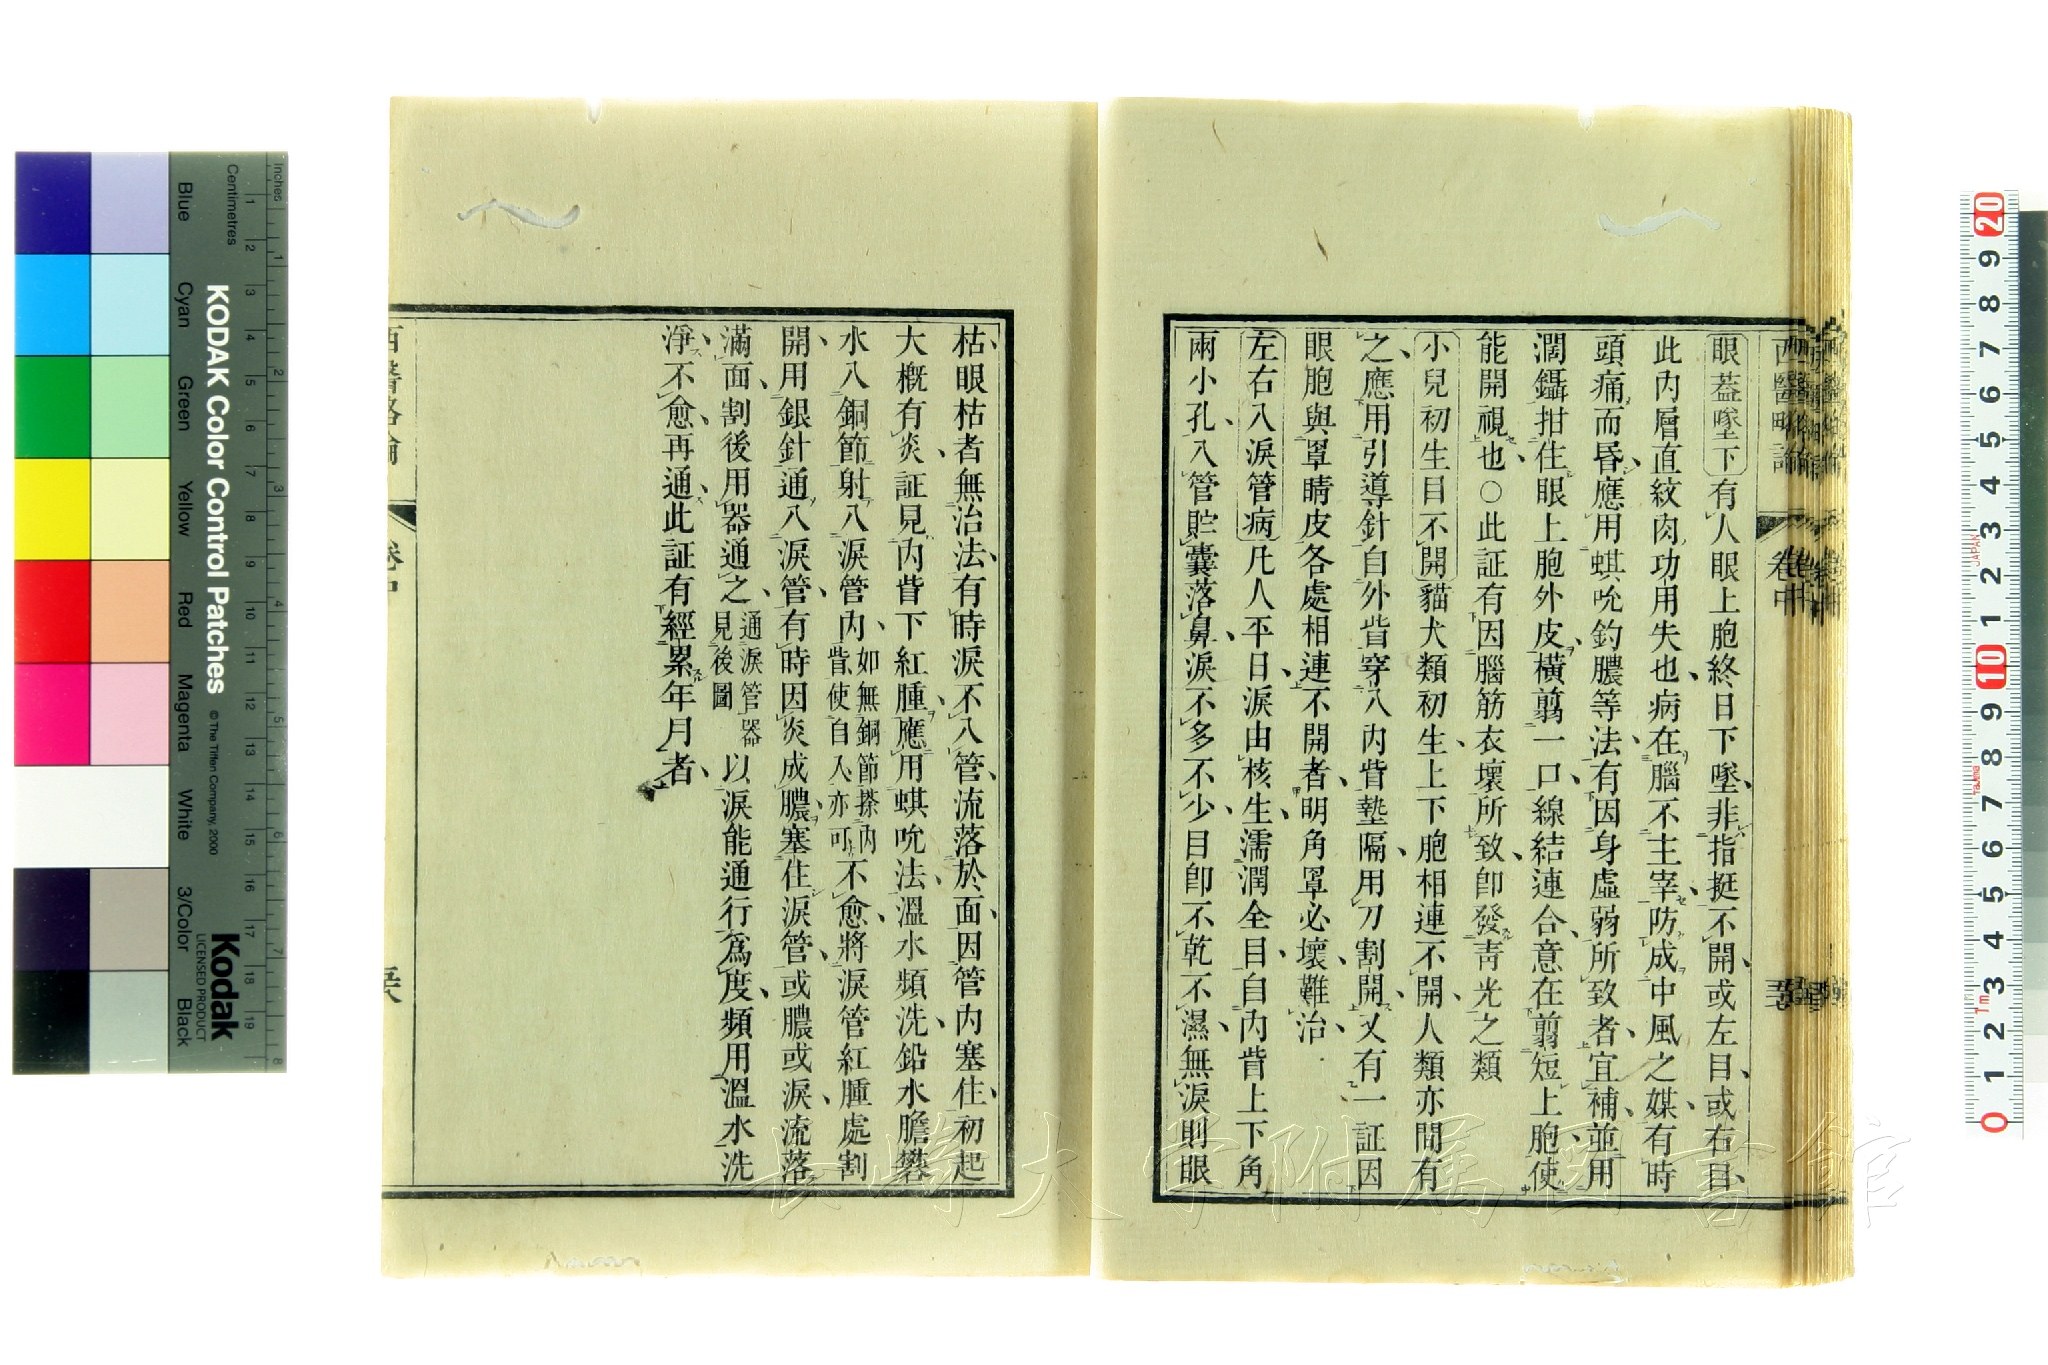 西醫略論
卷中
眼蓋墜下有人眼上胞終日下墜非指挺不開或左目或右目
此内層直紋肉功用失也病在腦不主宰防成中風之媒有時
頭痛而昏應用蜞吮釣膿等法有因身虛弱所致者宜補並用
濶鑷拑住眼上胞外皮橫翦一口線結連合意在翦短上胞使
能開視也○此証有因腦筋衣壞所致卽發靑光之類
小兒初生目不開貓犬類初生上下胞相連不開人類亦間有
之應用引導針自外眥穿入内眥墊隔用刀割開又有一証因
眼胞與罩睛皮各處相連不開者明角罩必壞難治
左右入淚管病凡人平日淚由核生濡潤全目自内眥上下角
兩小孔入管貯囊落鼻淚不多不少目卽不乾不濕無淚則眼
枯眼枯者無治法有時淚不入管流落於面因管内塞住初起
大槪有炎証見内眥下紅腫應用蜞吮法溫水頻洗鉛水膽礬
水入銅節射入淚管内如無銅節搽内眥使自入亦可不愈將淚管紅腫處割
開用銀針通入淚管有時因炎成膿塞住淚管或膿或淚流落
滿面割後用器通之通淚管器見後圖以淚能通行爲度頻用溫水洗
淨不愈再通此証有經累年月者
西醫略論
卷中
長崎大学附属図書館
KODAK Color Control Patches
© The Tiffen Company, 2000
Kodak
LICENSED PRODUCT
Inches
Centimetres
Blue
Cyan
Green
Yellow
Red
Magenta
White
3/Color
Black
1 2 3 4 5 6 7 8 9 10 11 12 13 14 15 16 17 18 19
1 2 3 4 5 6 7 8
20 9 8 7 6 5 4 3 2 1 10 9 8 7 6 5 4 3 2 1 0
JAPAN